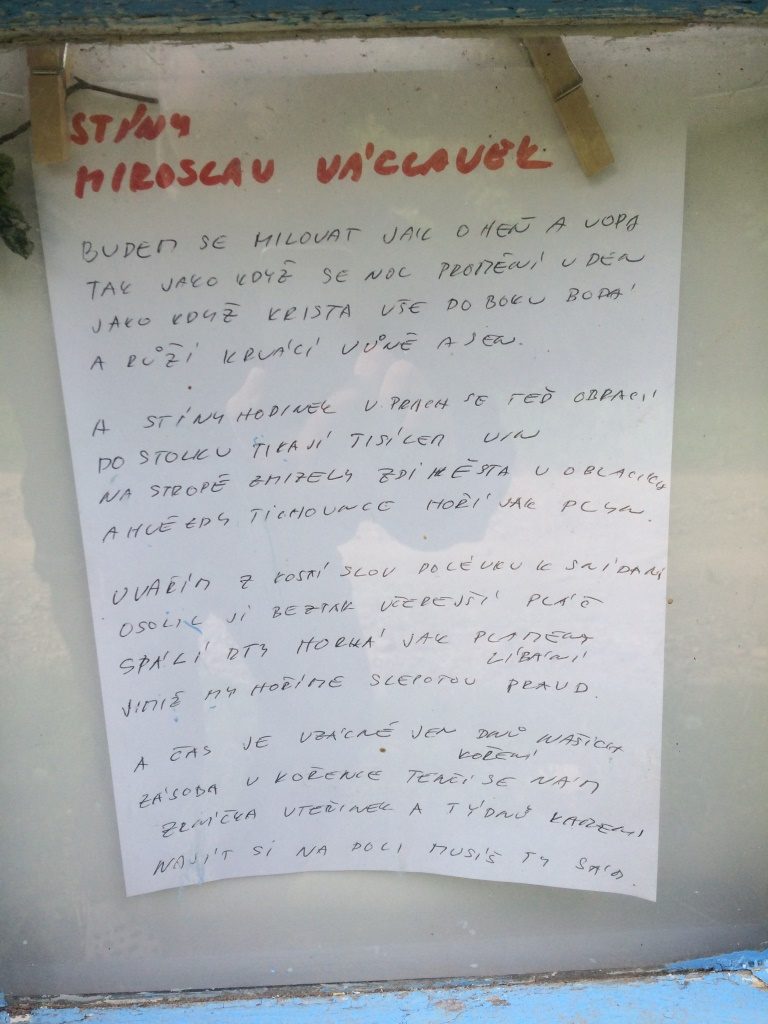 STÍNY
MIROSLAV VÁCLAVEK
BUDEM SE MILOVAT JAK OHEŇ A VODA
TAK JAKO KDYŽ SE NOC PROMĚNÍ V DEN
JAKO KDYŽ KRISTA VŠE DO BOKU BODÁ
A RŮŽÍ KRVÁCÍ VŮNĚ A SEN.
A STÍNY HODINEK V PRACH SE TEĎ OBRACÍ
DO STOLKU TIKAJÍ TISÍCEM VIN
NA STROPĚ ZMIZELY ZDI MĚSTA V OBLACÍCH
A HVĚZDY TICHOUNCE HOŘÍ JAK PLYN.
UVAŘÍM Z KOSTÍ SLOV POLÉVKU K SNÍDANI
OSOLIL JI BEZTAK VČEREJŠÍ PLÁČ
SPÁLÍ RTY HORKÁ JAK PLAMENY
LÍBÁNÍ
JIMIŽ MY HOŘÍME SLEPOTOU PRAVD.
A ČAS JE VZÁCNÉ JEN DNŮ NAŠICH
KOŘENÍ
ZÁSOBA V KOŘENCE TENČÍ SE NÁM
ZRNÍČKA VTEŘINEK A TÝDNŮ KAMENÍ
NAJÍT SI NA POLI MUSÍŠ TY SÁM.